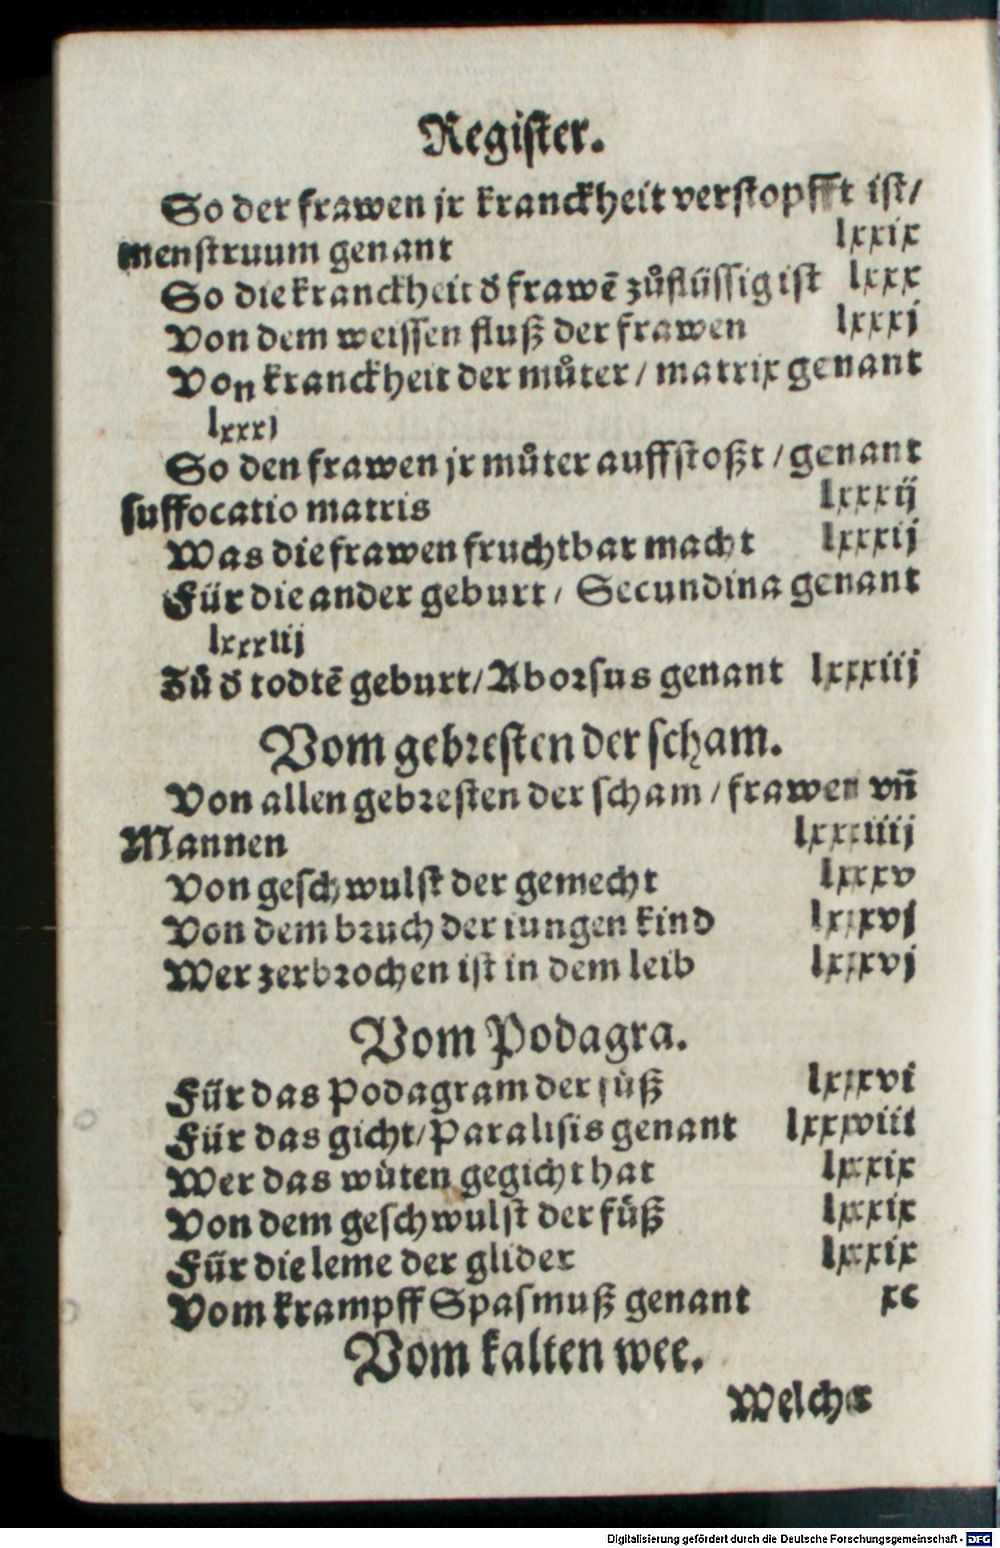 Register.
So der frawen jr kranckheit verstopfft ist/
menstruum genant lxxix
So die kranckheit d̕ frawē zůflüssig ist lxxx
Von dem weissen fluß der frawen lxxxj
Von kranckheit der můter/ matrix genant
lxxxj
So den frawen jr můter auffstoßt/ genant
suffocatio matris lxxxij
Was die frawen fruchtbar macht lxxxij
Für die ander geburt/ Secundina genant
lxxxiij
Zů d̕ todtē geburt/ Aborsus genant lxxxiij
Vom gebresten der scham.
Von allen gebresten der scham/ frawen vñ
Mannen lxxxiiij
Von geschwulst der gemecht lxxxv
Von dem bruch der iungen kind lxxxvj
Wer zerbrochen ist in dem leib lxxxvj
Vom Podagra.
Für das Podagram der füß lxxxvi
Für das gicht/ Paralisis genant lxxxviii
Wer das wůten gegicht hat lxxxix
Von dem geschwulst der füß lxxxix
Für die leme der glider lxxxix
Vom krampff Spasmuß genant xc
Vom kalten wee.
Welcher
Digitalisierung gefördert durch die Deutsche Forschungsgemeinschaft - DFG